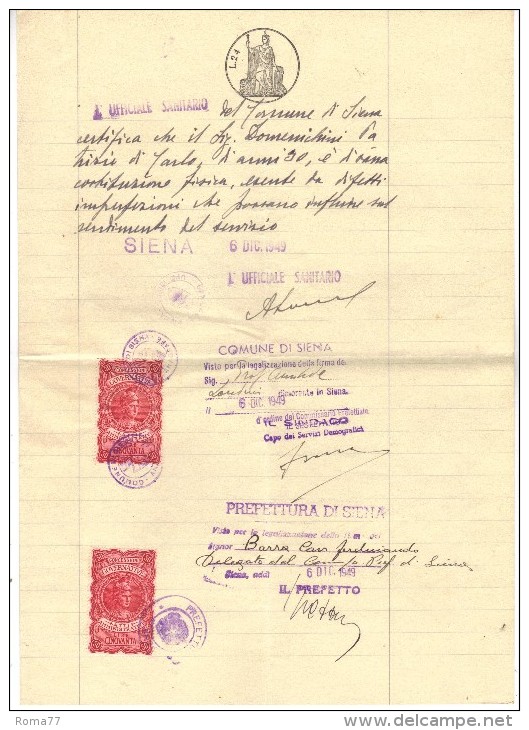 L.24
1° UFFICIALE SANITARIO del Comune di Siena
certifica che il Sig. Domenichini Pa
trizio di Carlo, d'anni 30, è di sana
costituzione fisica, esente da difetti
imperfezioni che possano influire sul
rendimento del servizio
SIENA 6 DIC. 1949
1° UFFICIALE SANITARIO
COMUNE DI SIENA
Visto per la legalizzazione della firma del
Sig. Prof.
Londini dimorante in Siena.
li 6 DIC. 1949
d'ordine del Commissario Prefettizio
IL SINDACO
Capo dei Servizi Demografici
CONCESSIONI
GOVERNATIVE
CINQUANTA
PREFETTURA DI SIENA
Visto per la legalizzazione della firma del
Signor Barra Cav. Ferdinando
Delegato del Com/o Pref. di Siena
Siena, addì 6 DIC. 1949
IL PREFETTO
CONCESSIONI
GOVERNATIVE
LIRE
CINQUANTA
PREFETTU
Roma77
www.delcampe.net